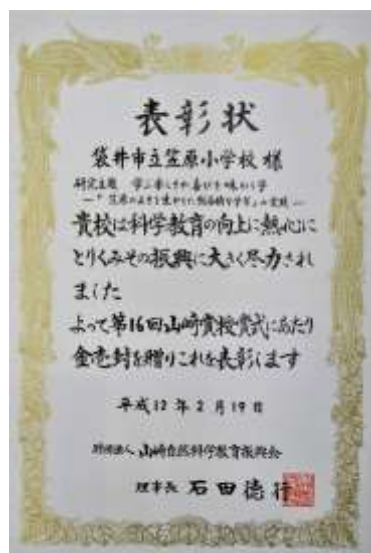 表彰状
袋井市立笠原小学校 様
研究主題 学ぶ楽しさや喜びを味わう学
貴校は科学教育の向上に熱心に
とりくみその振興に大きく尽力され
ました
よって第16回山崎賞授賞式にあたり
金壱封を贈りこれを表彰します
平成12年2月19日
財団法人 山崎自然科学教育振興会
理事長 石田徳行